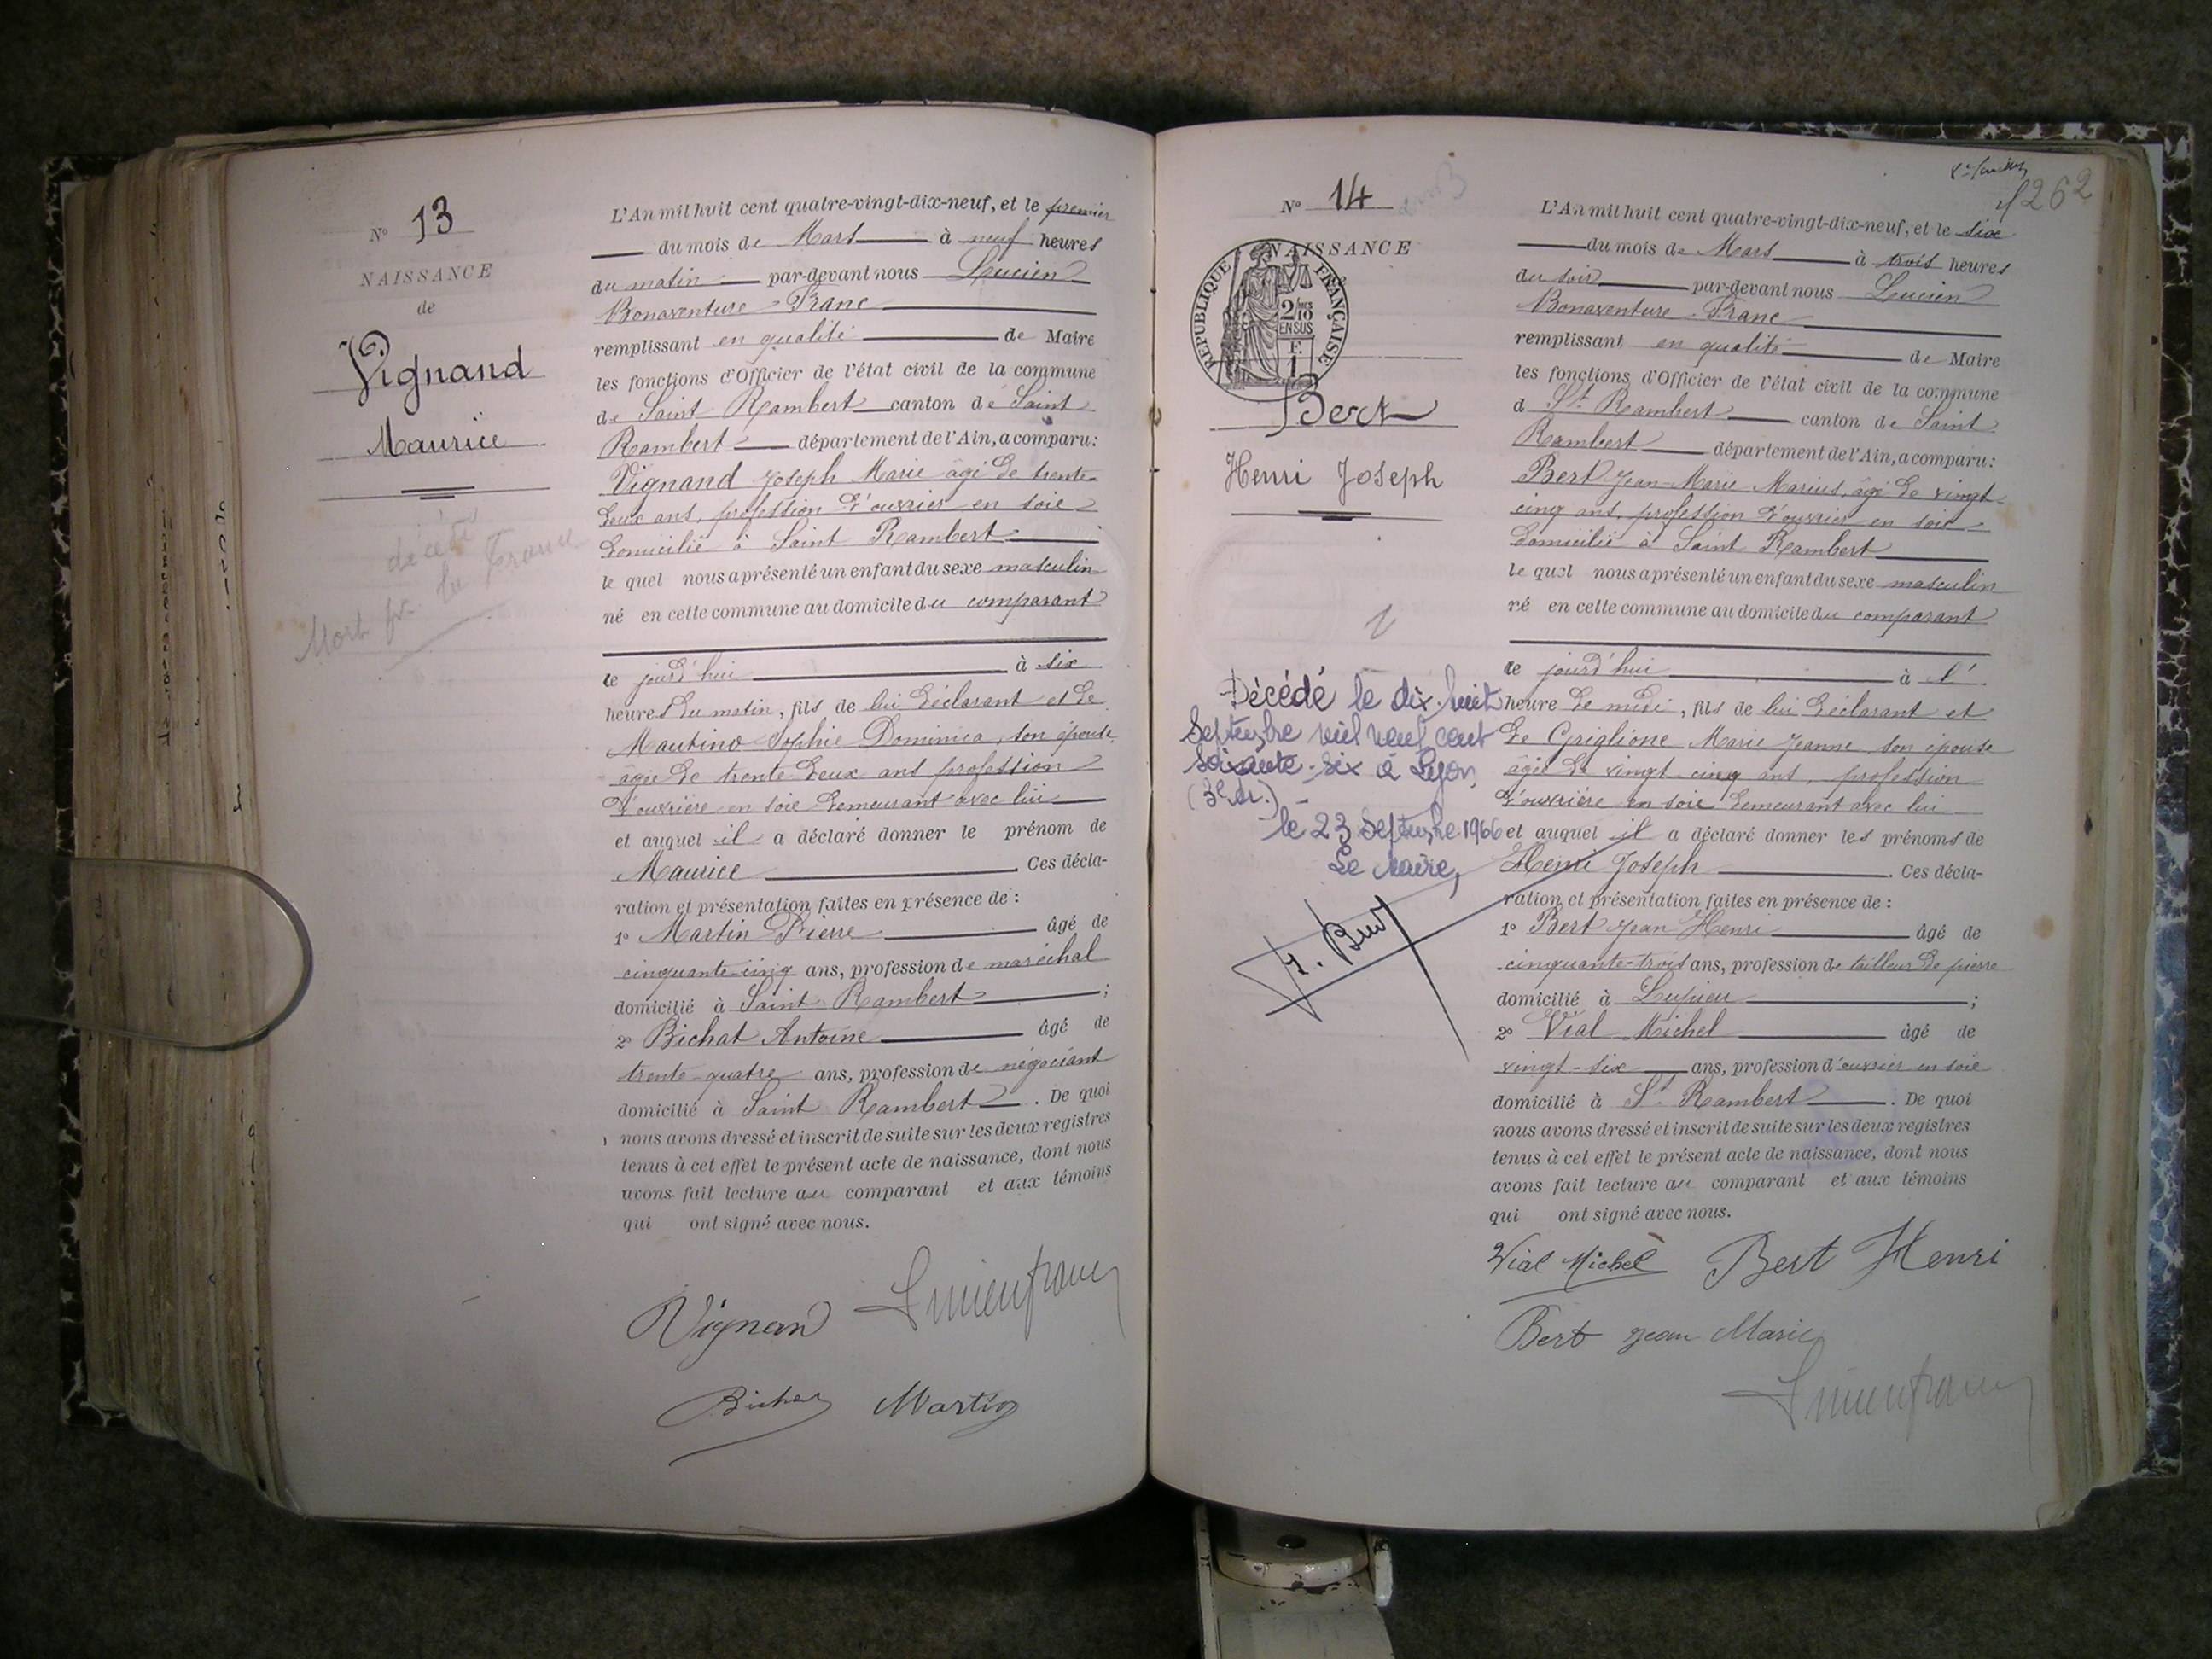 N° 13
NAISSANCE
de
Vignand
Maurice
décédé
Mort pr. la France
L'An mil huit cent quatre-vingt-dix-neuf, et le premier
du mois de Mars à neuf heures
du matin par-devant nous Lucien
Bonaventure Franc
remplissant en qualité de Maire
les fonctions d'Officier de l'état civil de la commune
de Saint Rambert canton de Saint
Rambert département de l'Ain, a comparu:
Vignand Joseph Marie âgé de trente-
deux ans, profession d'ouvrier en soie
domicilié à Saint Rambert
le quel nous a présenté un enfant du sexe masculin
né en cette commune au domicile du comparant
le jourd'hui à six
heures du matin, fils de lui déclarant et de
Mautino Sophie Dominica, son épouse
âgée de trente deux ans profession
d'ouvrière en soie demeurant avec lui
et auquel il a déclaré donner le prénom de
Maurice . Ces décla-
ration et présentation faites en présence de :
1° Martin Pierre âgé de
cinquante-cinq ans, profession de maréchal
domicilié à Saint Rambert ;
2° Bichat Antoine âgé de
trente-quatre ans, profession de négociant
domicilié à Saint Rambert . De quoi
nous avons dressé et inscrit de suite sur les deux registres
tenus à cet effet le présent acte de naissance, dont nous
avons fait lecture au comparant et aux témoins
qui ont signé avec nous.
Vignand Lucien franc
Bichat Martin
262
N° 14
NAISSANCE
RÉPUBLIQUE FRANÇAISE
2/10 EN SUS
Bert
Henri Joseph
Décédé le dix-huit
Septembre mil neuf cent
soixante-six à Lyon
(3e Ar.)
le 23 Septembre 1966
Le Maire,
L'An mil huit cent quatre-vingt-dix-neuf, et le six
du mois de Mars à trois heures
du soir par-devant nous Lucien
Bonaventure Franc
remplissant en qualité de Maire
les fonctions d'Officier de l'état civil de la commune
d St. Rambert canton de Saint
Rambert département de l'Ain, a comparu:
Bert Jean-Marie Marius, âgé de vingt-
cinq ans, profession d'ouvrier en soie
domicilié à Saint Rambert
le quel nous a présenté un enfant du sexe masculin
né en cette commune au domicile du comparant
le jourd'hui à l'
heure de midi, fils de lui déclarant et
de Griglione Marie Jeanne son épouse
âgée de vingt-cinq ans, profession
d'ouvrière en soie demeurant avec lui
et auquel il a déclaré donner les prénoms de
Henri Joseph . Ces décla-
ration et présentation faites en présence de :
1° Bert Jean Henri âgé de
cinquante-trois ans, profession de tailleur de pierre
domicilié à Lupieu ;
2° Vial Michel âgé de
vingt-six ans, profession d'ouvrier en soie
domicilié à St. Rambert . De quoi
nous avons dressé et inscrit de suite sur les deux registres
tenus à cet effet le présent acte de naissance, dont nous
avons fait lecture au comparant et aux témoins
qui ont signé avec nous.
Vial Michel Bert Henri
Bert Jean Marie
Lucien franc